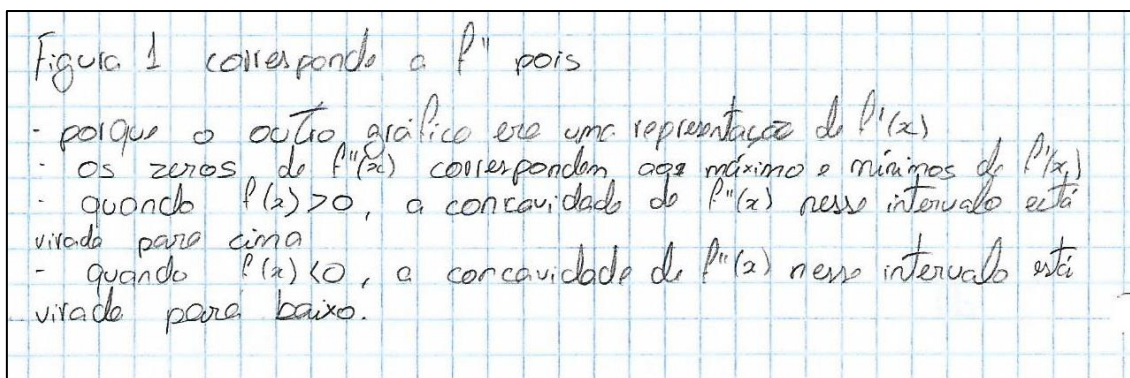 Figura 1 corresponde a f" pois
- porque o outro gráfico era uma representação de f'(x)
- os zeros de f"(x) correspondem aos máximo e mínimos de f'(x)
- quando f(x)>0, a concavidade de f"(x) nesse intervalo está
virada para cima
- quando f(x)<0, a concavidade de f"(x) nesse intervalo está
virada para baixo.